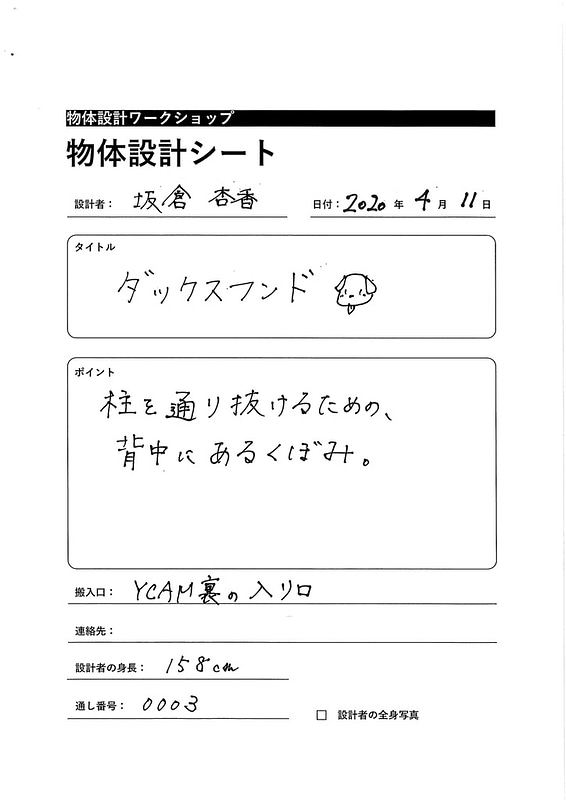 物体設計ワークショップ
物体設計シート
設計者： 坂倉 杏香
日付：2020年 4月 11日
タイトル
ダックスフンド
ポイント
柱を通り抜けるための、
背中にあるくぼみ。
搬入口： YCAM裏の入り口
連絡先：
設計者の身長： 158cm
通し番号： 0003
□ 設計者の全身写真